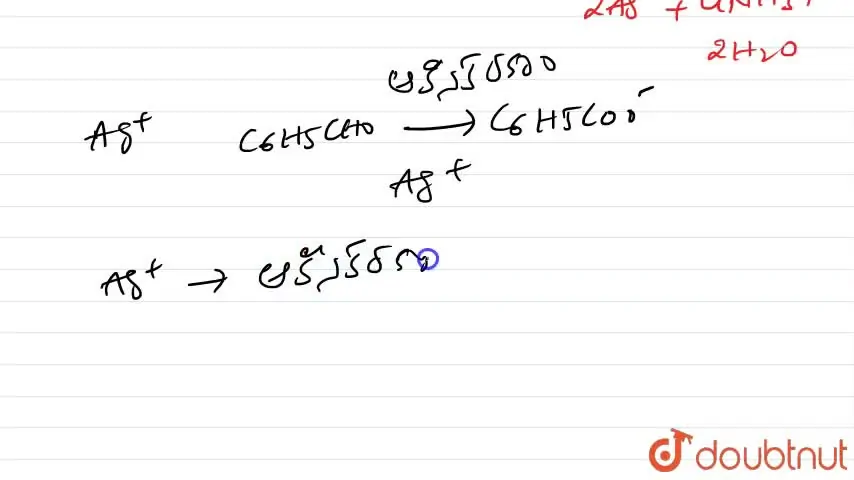 2Ag + 4NH3 +
2H2O
Ag+ C6H5CHO → C6H5COO-
Ag+
Ag+ →
doubtnut